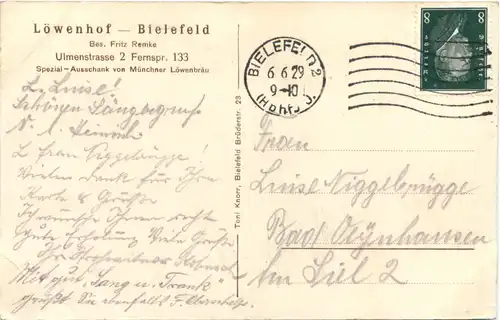 Löwenhof — Bielefeld
Bes. Fritz Remke
Ulmenstrasse 2 Fernspr. 133
Spezial-Ausschank von Münchner Löwenbräu
L. Luise!
Schönen Sängergruß
L. Frau Niggebrügge!
Vielen Dank für Ihre
Karte & Grüße
Ich wünsche Ihnen recht
gute Erholung Viele Grüße
Ihr
Mit gut. "Sang u. Trank"
grüßt Sie ebenfalls F.
Toni Knorr, Bielefeld Brüderstr. 23
BIELEFELD 2
6.6.29
9-10
8 8
Frau
Luise Niggebrügge
Bad Oeynhausen
Im Siel 2